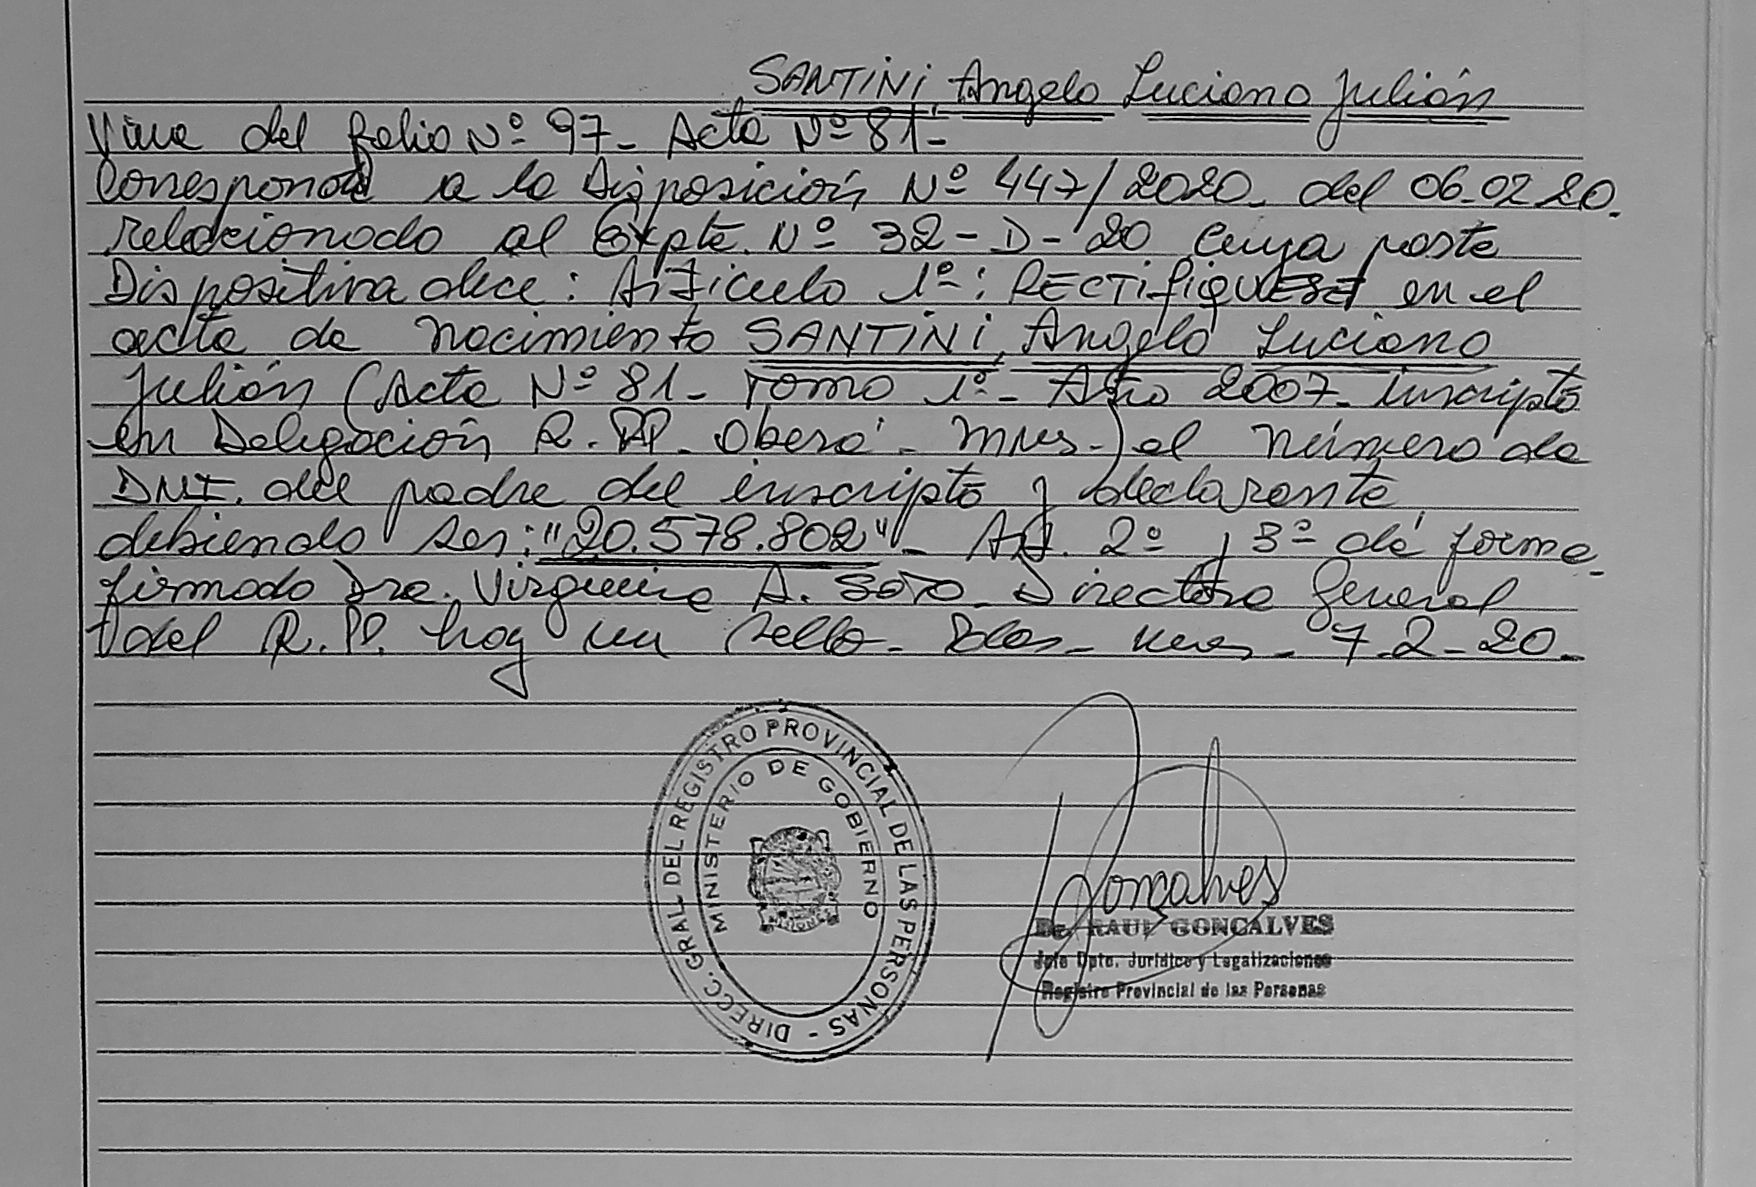 SANTINI, Angelo Luciano Julián
Viene del folio Nº 97- Acta Nº 81-
Corresponde a la Disposición Nº 447/2020- del 06-02 20.
relacionado al Expte. Nº 32-D-20 cuya parte
Dispositiva dice: Artículo 1º: RECTIFIQUESE en el
acta de nacimiento SANTINI, Angelo Luciano
Julián (Acta Nº 81- Tomo 1º- Año 2007- inscripto
en Delegación R.PP. Oberá- Mnes-) el número de
DNI. del padre del inscripto y declarante,
debiendo ser: "20.578.802"- Art. 2º y 3º de forma.
firmado Dra. Virginia A. Soto- Directora General
del R.PP. hay un sello- Pdas- Mnes- 7-2-20-
DIRECC. GRAL. DEL REGISTRO PROVINCIAL DE LAS PERSONAS -
MINISTERIO DE GOBIERNO
Goncalves
Dr. RAUL GONCALVES
Jefe Dpto. Jurídico y Legalizaciones
Registro Provincial de las Personas